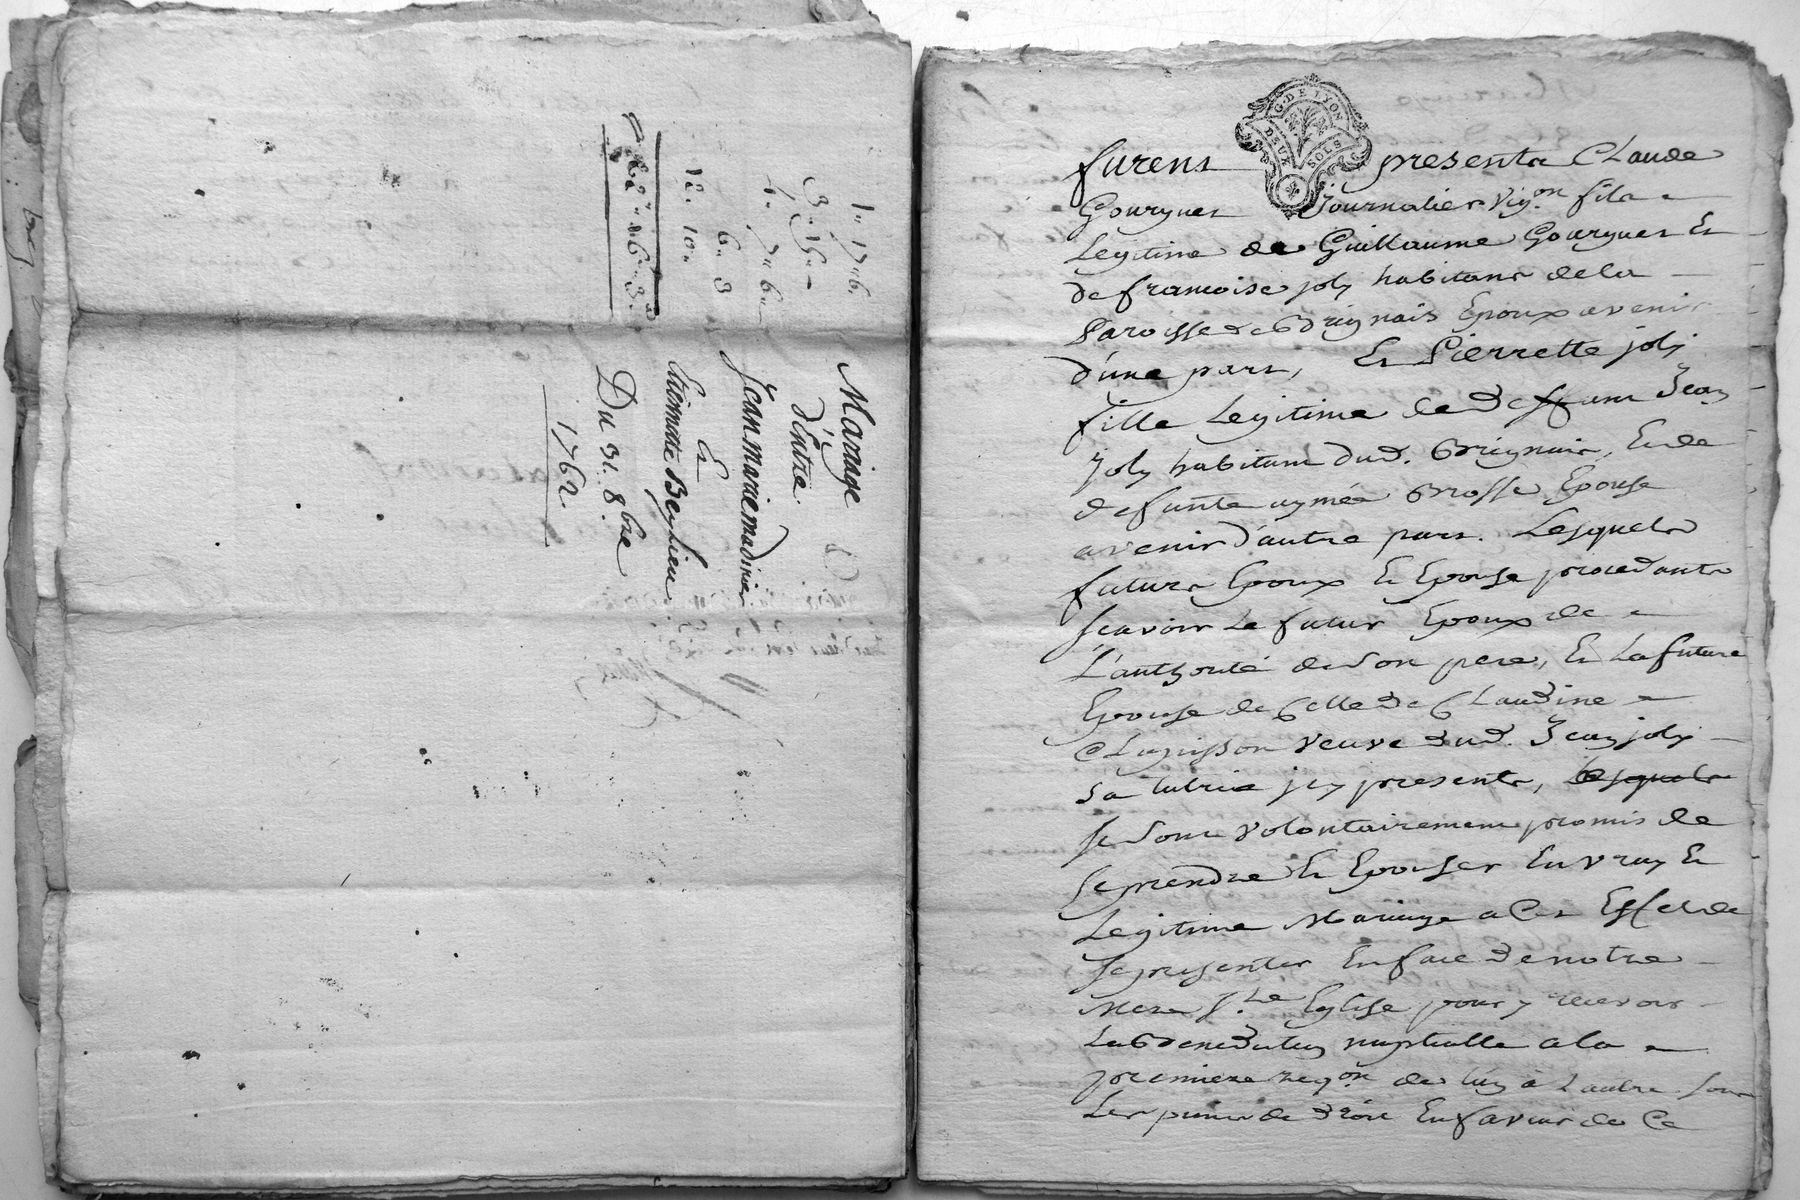 1" 17" 6.
3" 15" -
4" 7" 6"
6" 3
12.
10"
Mariage
d'Entre
Jean marie madinier
Et
Etiennette Beylieu
Du 31. 8bre
1762.
G. DE LYON
DEUX SOLS
furent presents Claude
Gourgues Journalier Vig.on fils
Legitime de Guillaume Gourgues Et
de francoise joly habitant de la
Paroisse de Brignais Epoux avenir
d'une part, Et Pierrette joly
fille Legitime de deffunt Jean
Joly habitant dud. Brignais, Et de
defunte aymée Brosse Epouse
avenir d'autre part. Lesquels
futurs Epoux Et Epouse procedants
scavoir Le futur Epoux de
L'authorité de son pere, Et La future
Epouse de Celle de Claudine
veuve dud. Jean joly
sa tutrice jcy presents, Lesquels
se sont volontairement promis de
se prendre Et Epouser En vray Et
Legitime Mariage a Ces Effet de
se presenter En face de notre
Mere S.te Eglise pour y recevoir
La Benediction nuptialle a la
premiere req.on de l'un a L'autre sous
Les peines de droit En faveur de Ce